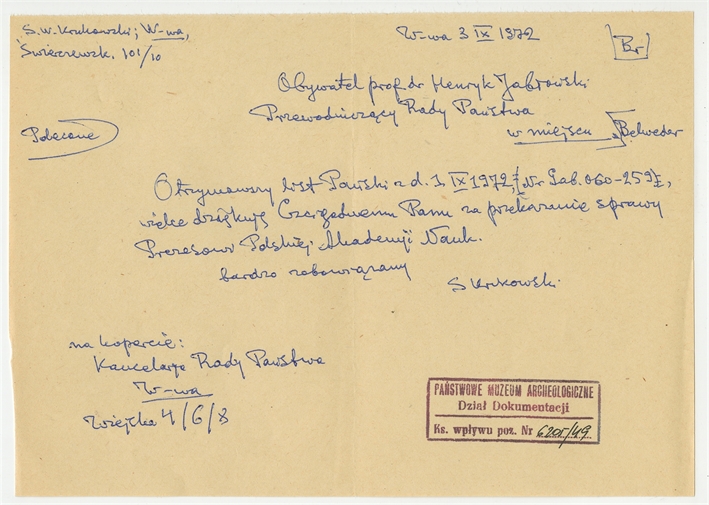 S.W. Krukowski; W-wa,
Świerczewsk. 101/10
W-wa 3 IX 1972
[Br]
Obywatel prof. dr Henryk Jabłoński
Przewodniczący Rady Państwa
w miejscu
Belweder
Polecone
Otrzymawszy list Pański z d. 1 IX 1972, [Nr Gab. 060-259],
wielce dziękuję Czcigodnemu Panu za przekazanie sprawy
Prezesowi Polskiej Akademji Nauk.
bardzo zobowiązany
S Krukowski
na kopercie:
Kancelarja Rady Państwa
W-wa
Wiejska 4/6/8
PAŃSTWOWE MUZEUM ARCHEOLOGICZNE
Dział Dokumentacji
Ks. wpływu poz. Nr 6205/49.